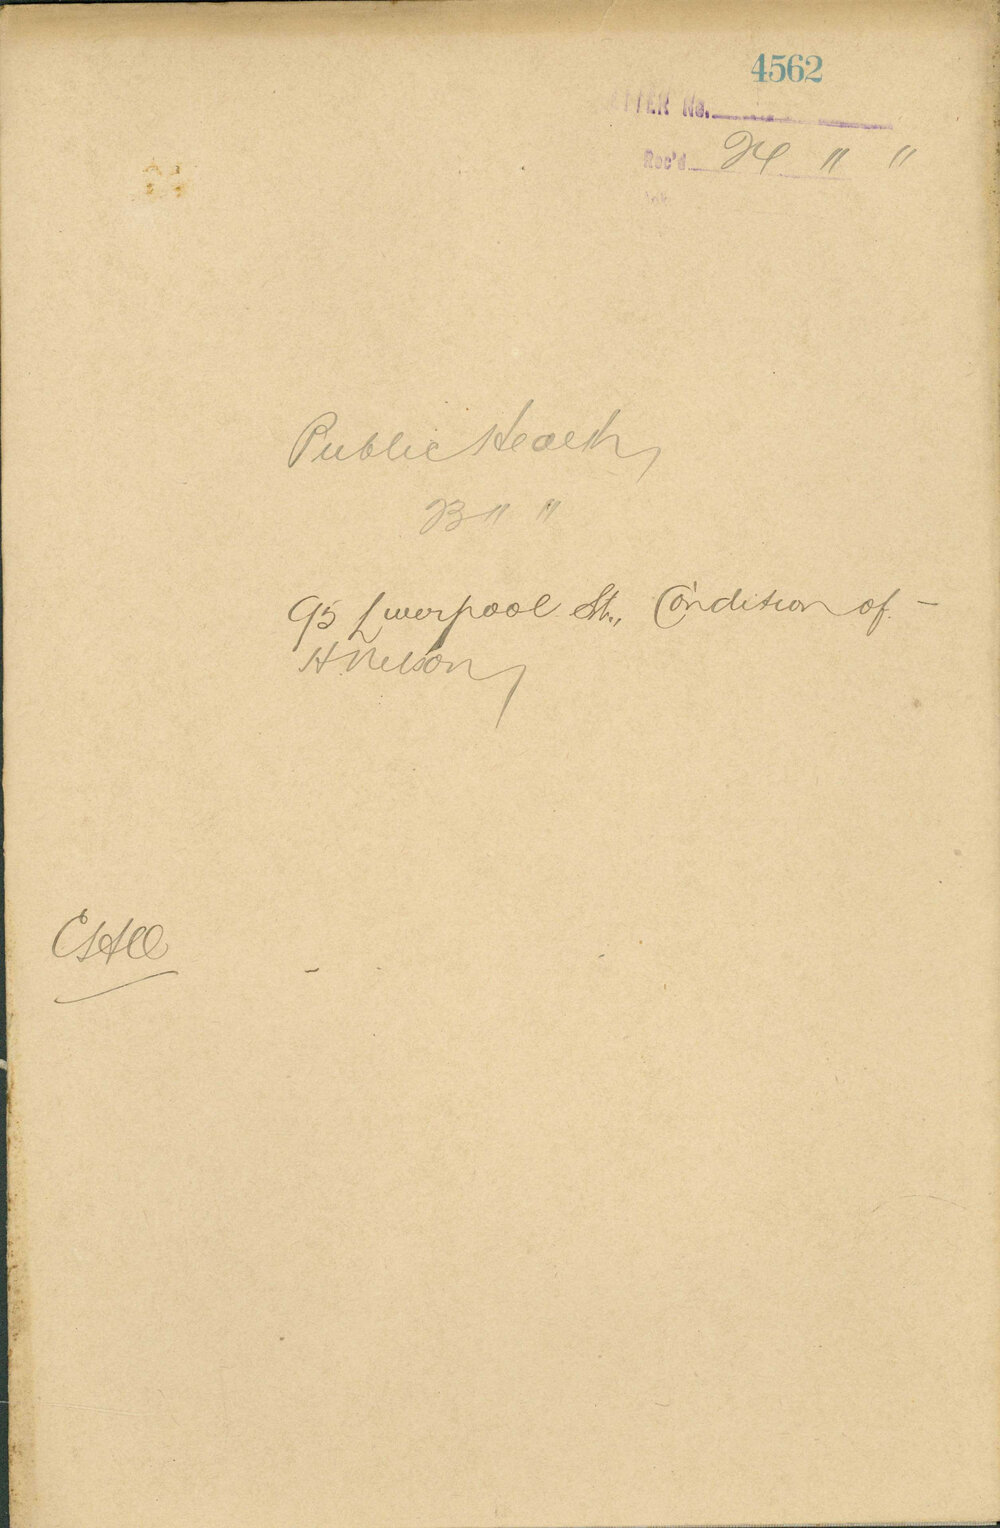 4562
LETTER No.
Rec'd 24 " "
Public Health,
23 " "
95 Liverpool St., Condition of -
H. Nelson,